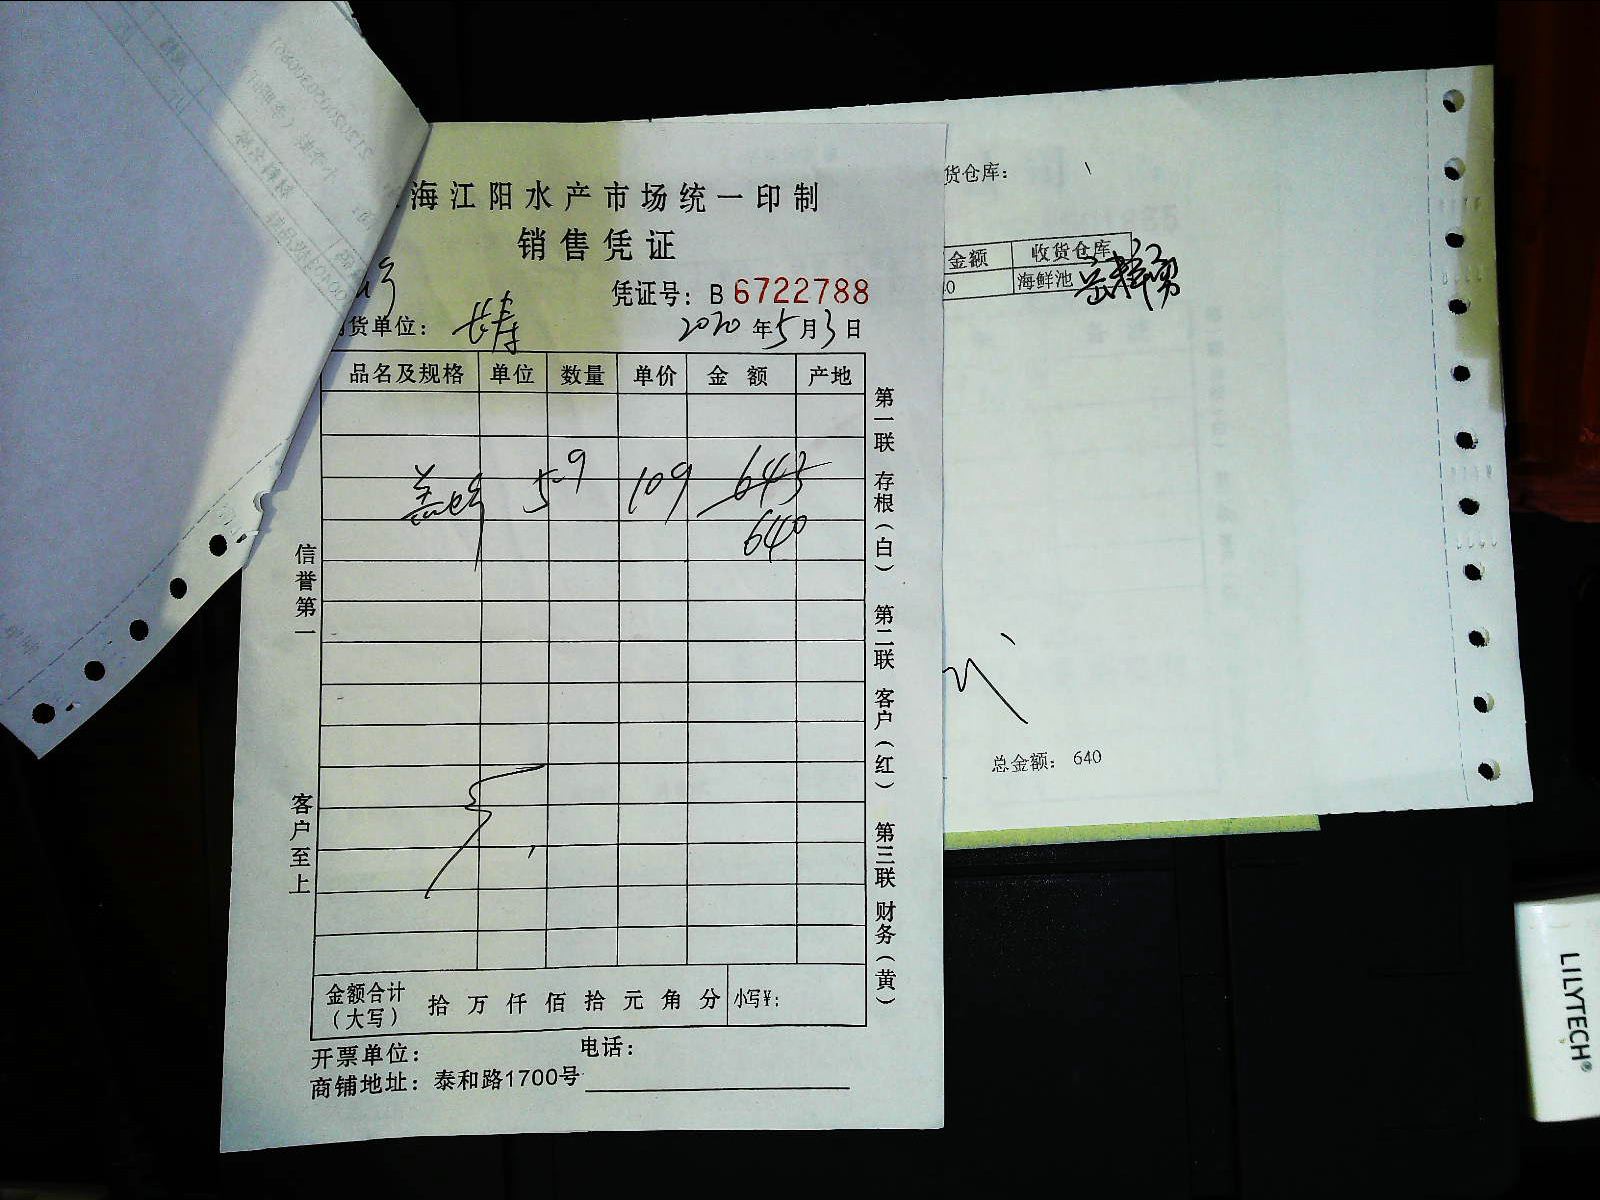 海江阳水产市场统一印制
销售凭证
凭证号：B 6722788
货单位：长寿
2020年5月3日
品名及规格 单位 数量 单价 金额 产地
5-9 109 643
640
金额合计（大写） 拾 万 仟 佰 拾 元 角 分 小写¥：
开票单位： 电话：
商铺地址：泰和路1700号
信誉第一
客户至上
第一联 存根（白） 第二联 客户（红） 第三联 财务（黄）
货仓库：
金额 收货仓库
0 海鲜池
总金额： 640
LILYTECH®